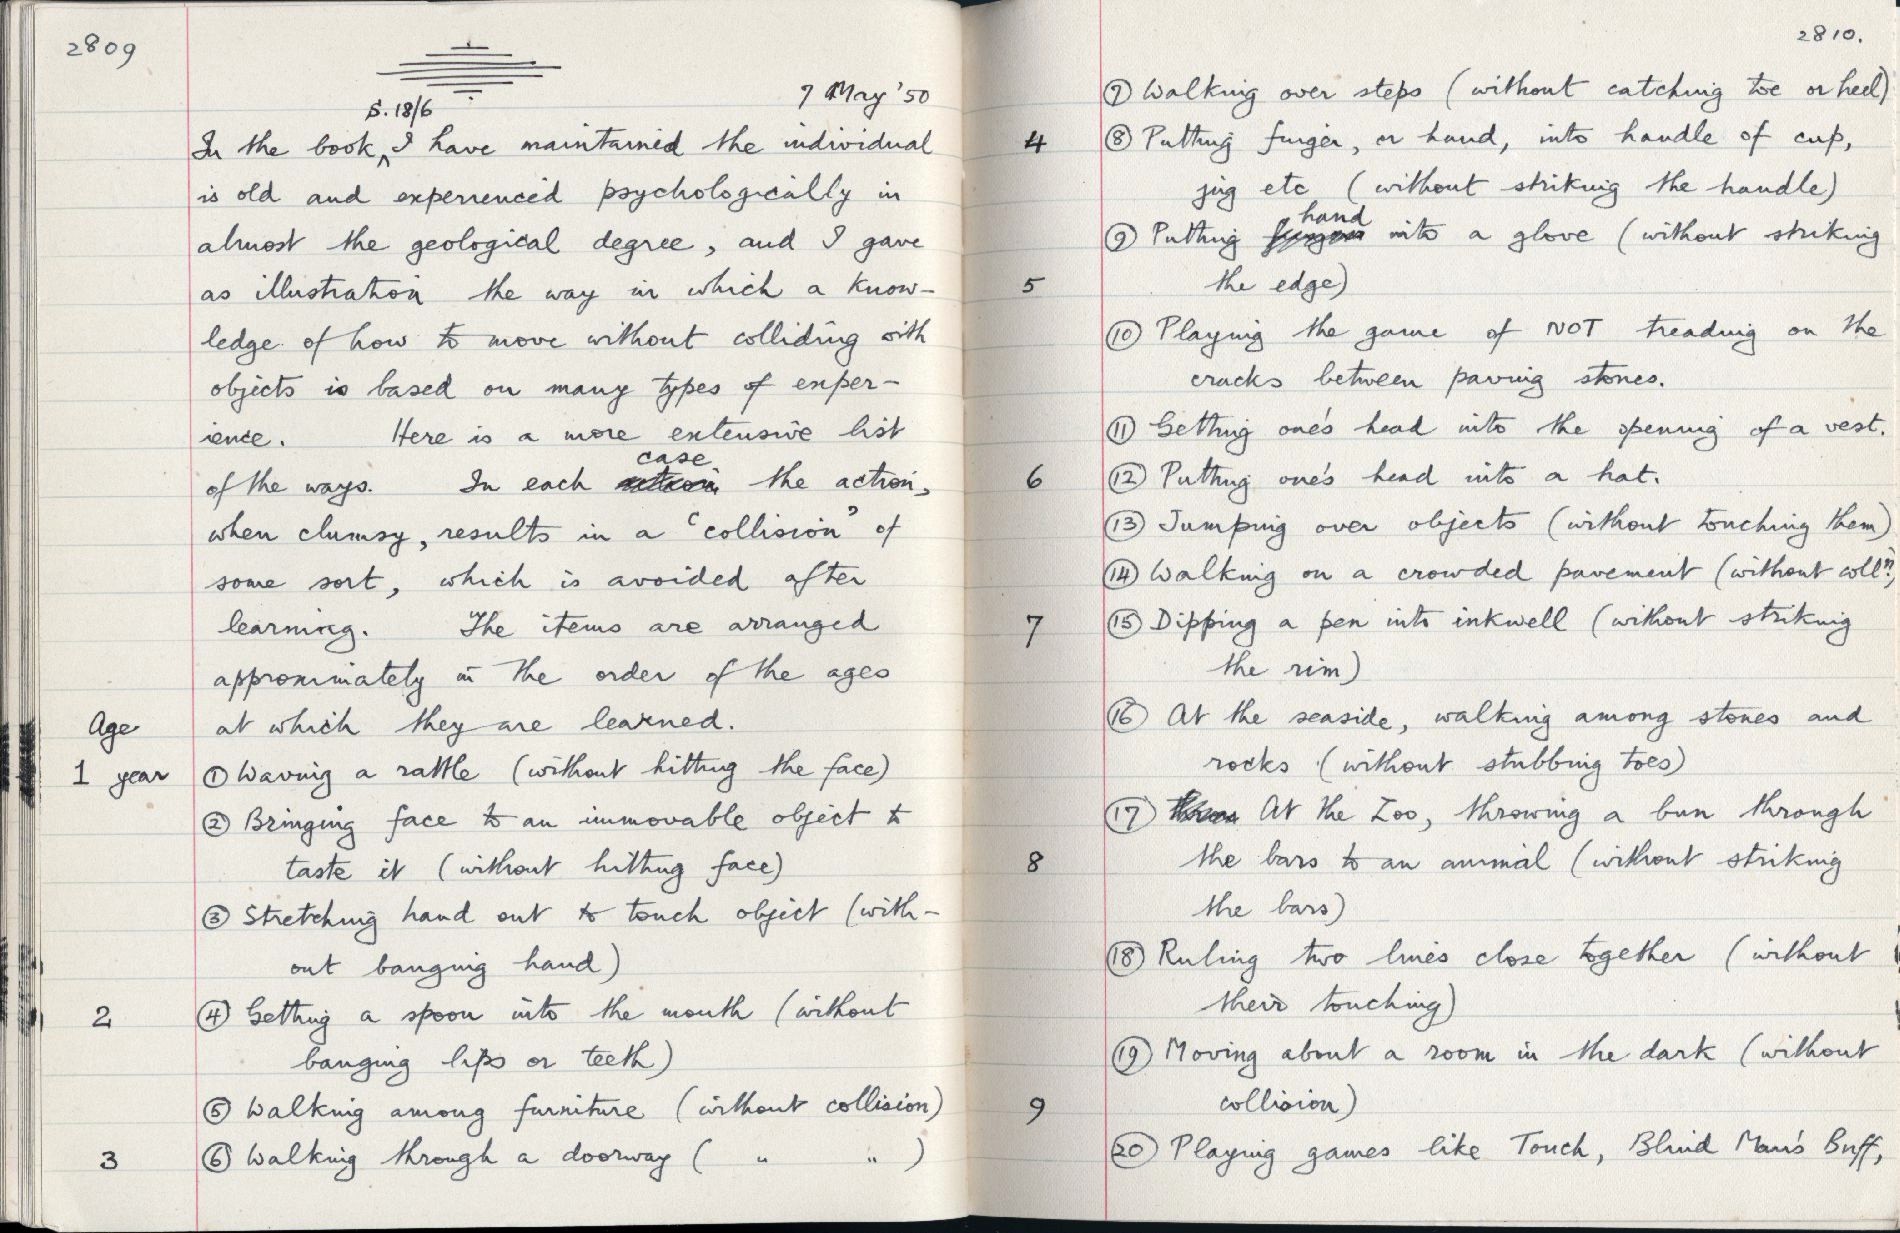 2809
7 May '50
S. 18/6
In the book, I have maintained the individual
is old and experienced psychologically in
almost the geological degree, and I gave
as illustration the way in which a know-
ledge of how to move without colliding with
objects is based on many types of exper-
ience. Here is a more extensive list
case
of the ways. In each the action,
when clumsy, results in a "collision" of
some sort, which is avoided after
learning. The items are arranged
approximately in the order of the ages
Age at which they are learned.
1 year ① Waving a rattle (without hitting the face)
② Bringing face to an immovable object to
taste it (without hitting face)
③ Stretching hand out to touch object (with-
out banging hand)
2 ④ Getting a spoon into the mouth (without
banging lips or teeth)
⑤ Walking among furniture (without collision)
3 ⑥ Walking through a doorway ( " " )
2810.
⑦ Walking over steps (without catching toe or heel)
4 ⑧ Putting finger, or hand, into handle of cup,
jug etc (without striking the handle)
hand
⑨ Putting into a glove (without striking
5 the edge)
⑩ Playing the game of NOT treading on the
cracks between paving stones.
⑪ Getting one's head into the opening of a vest.
6 ⑫ Putting one's head into a hat.
⑬ Jumping over objects (without touching them)
⑭ Walking on a crowded pavement (without collⁿ)
7 ⑮ Dipping a pen into inkwell (without striking
the rim)
⑯ At the seaside, walking among stones and
rocks (without stubbing toes)
⑰ At the Zoo, throwing a bun through
8 the bars to an animal (without striking
the bars)
⑱ Ruling two lines close together (without
their touching)
⑲ Moving about a room in the dark (without
9 collision)
⑳ Playing games like Touch, Blind Man's Buff,